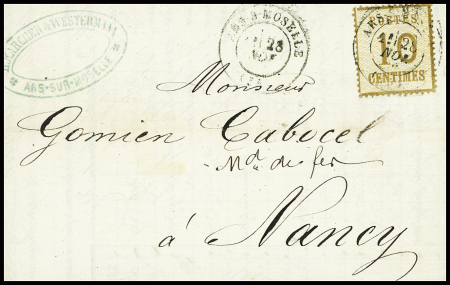 & WESTERMANN
ARS-SUR-MOSELLE
ARS-S-MOSELLE
28
NOV
POSTES
10
CENTIMES
28
NOV
Monsieur
Gomien Cabocel
Md de fer
à Nancy